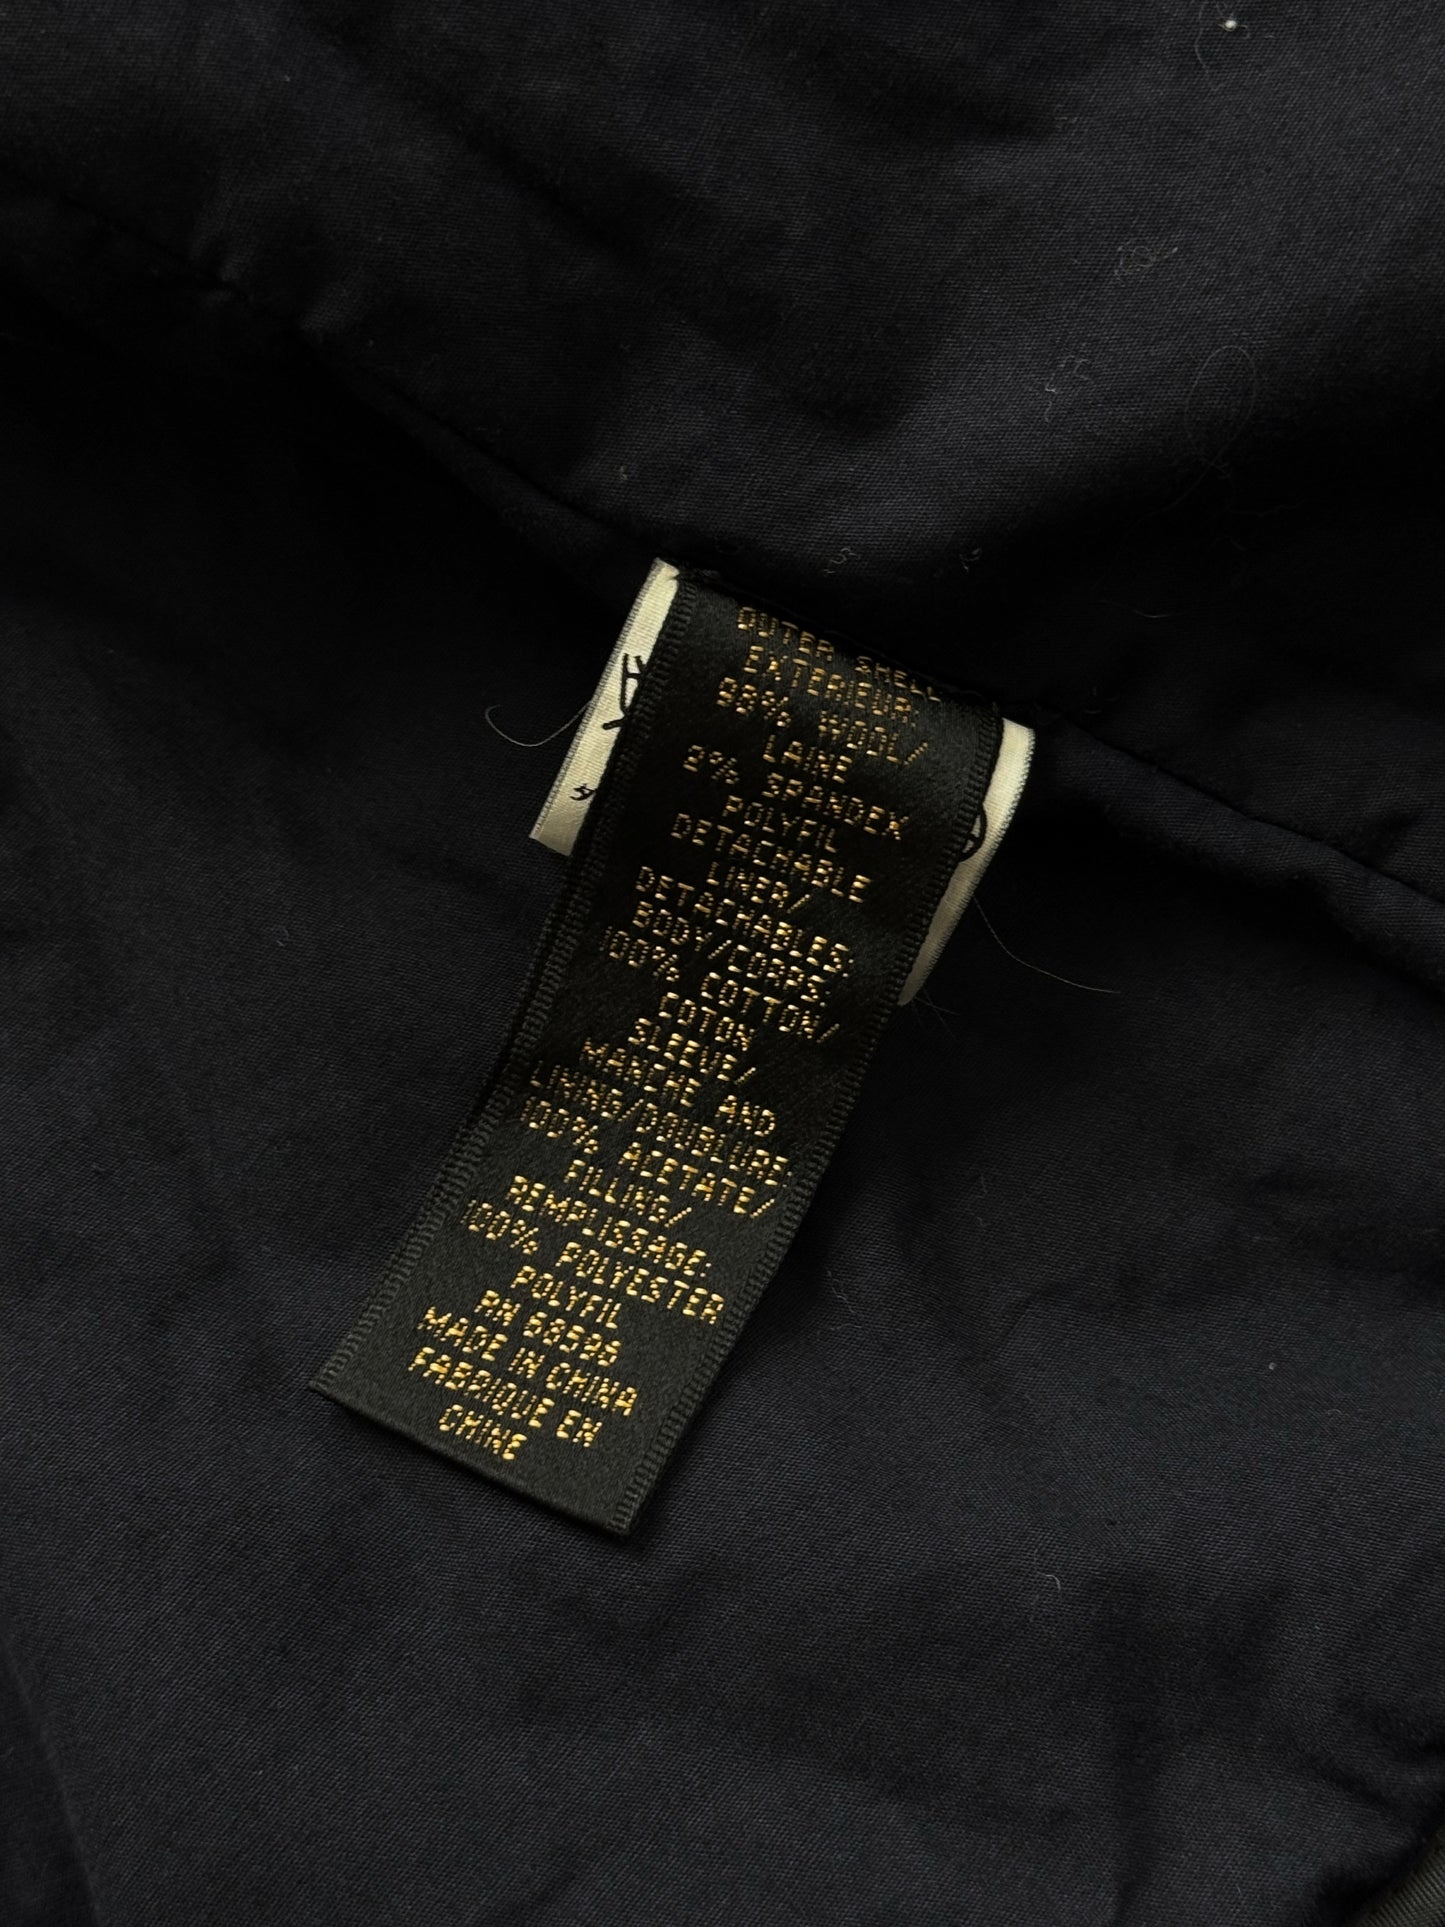 OUTER SHELL/
EXTERIEUR:
98% WOOL/
LAINE
2% SPANDEX
POLYFIL
DETACHABLE
LINER/
DETACHABLES:
BODY/CORPS:
100% COTTON/
COTON
SLEEVE/
MANCHE AND
LINING/DOUBLURE:
100% ACETATE/
FILLING/
REMPLISSAGE:
100% POLYESTER
POLYFIL
RN 68596
MADE IN CHINA
FABRIQUE EN
CHINE